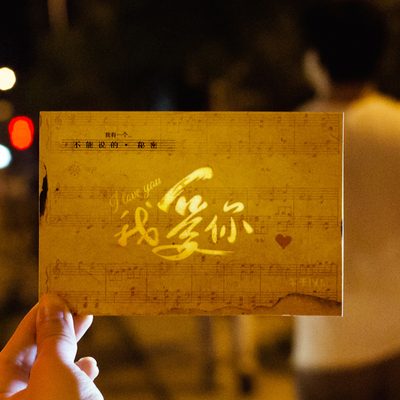 我有一个...
不能说的·秘密
I love you
我爱你